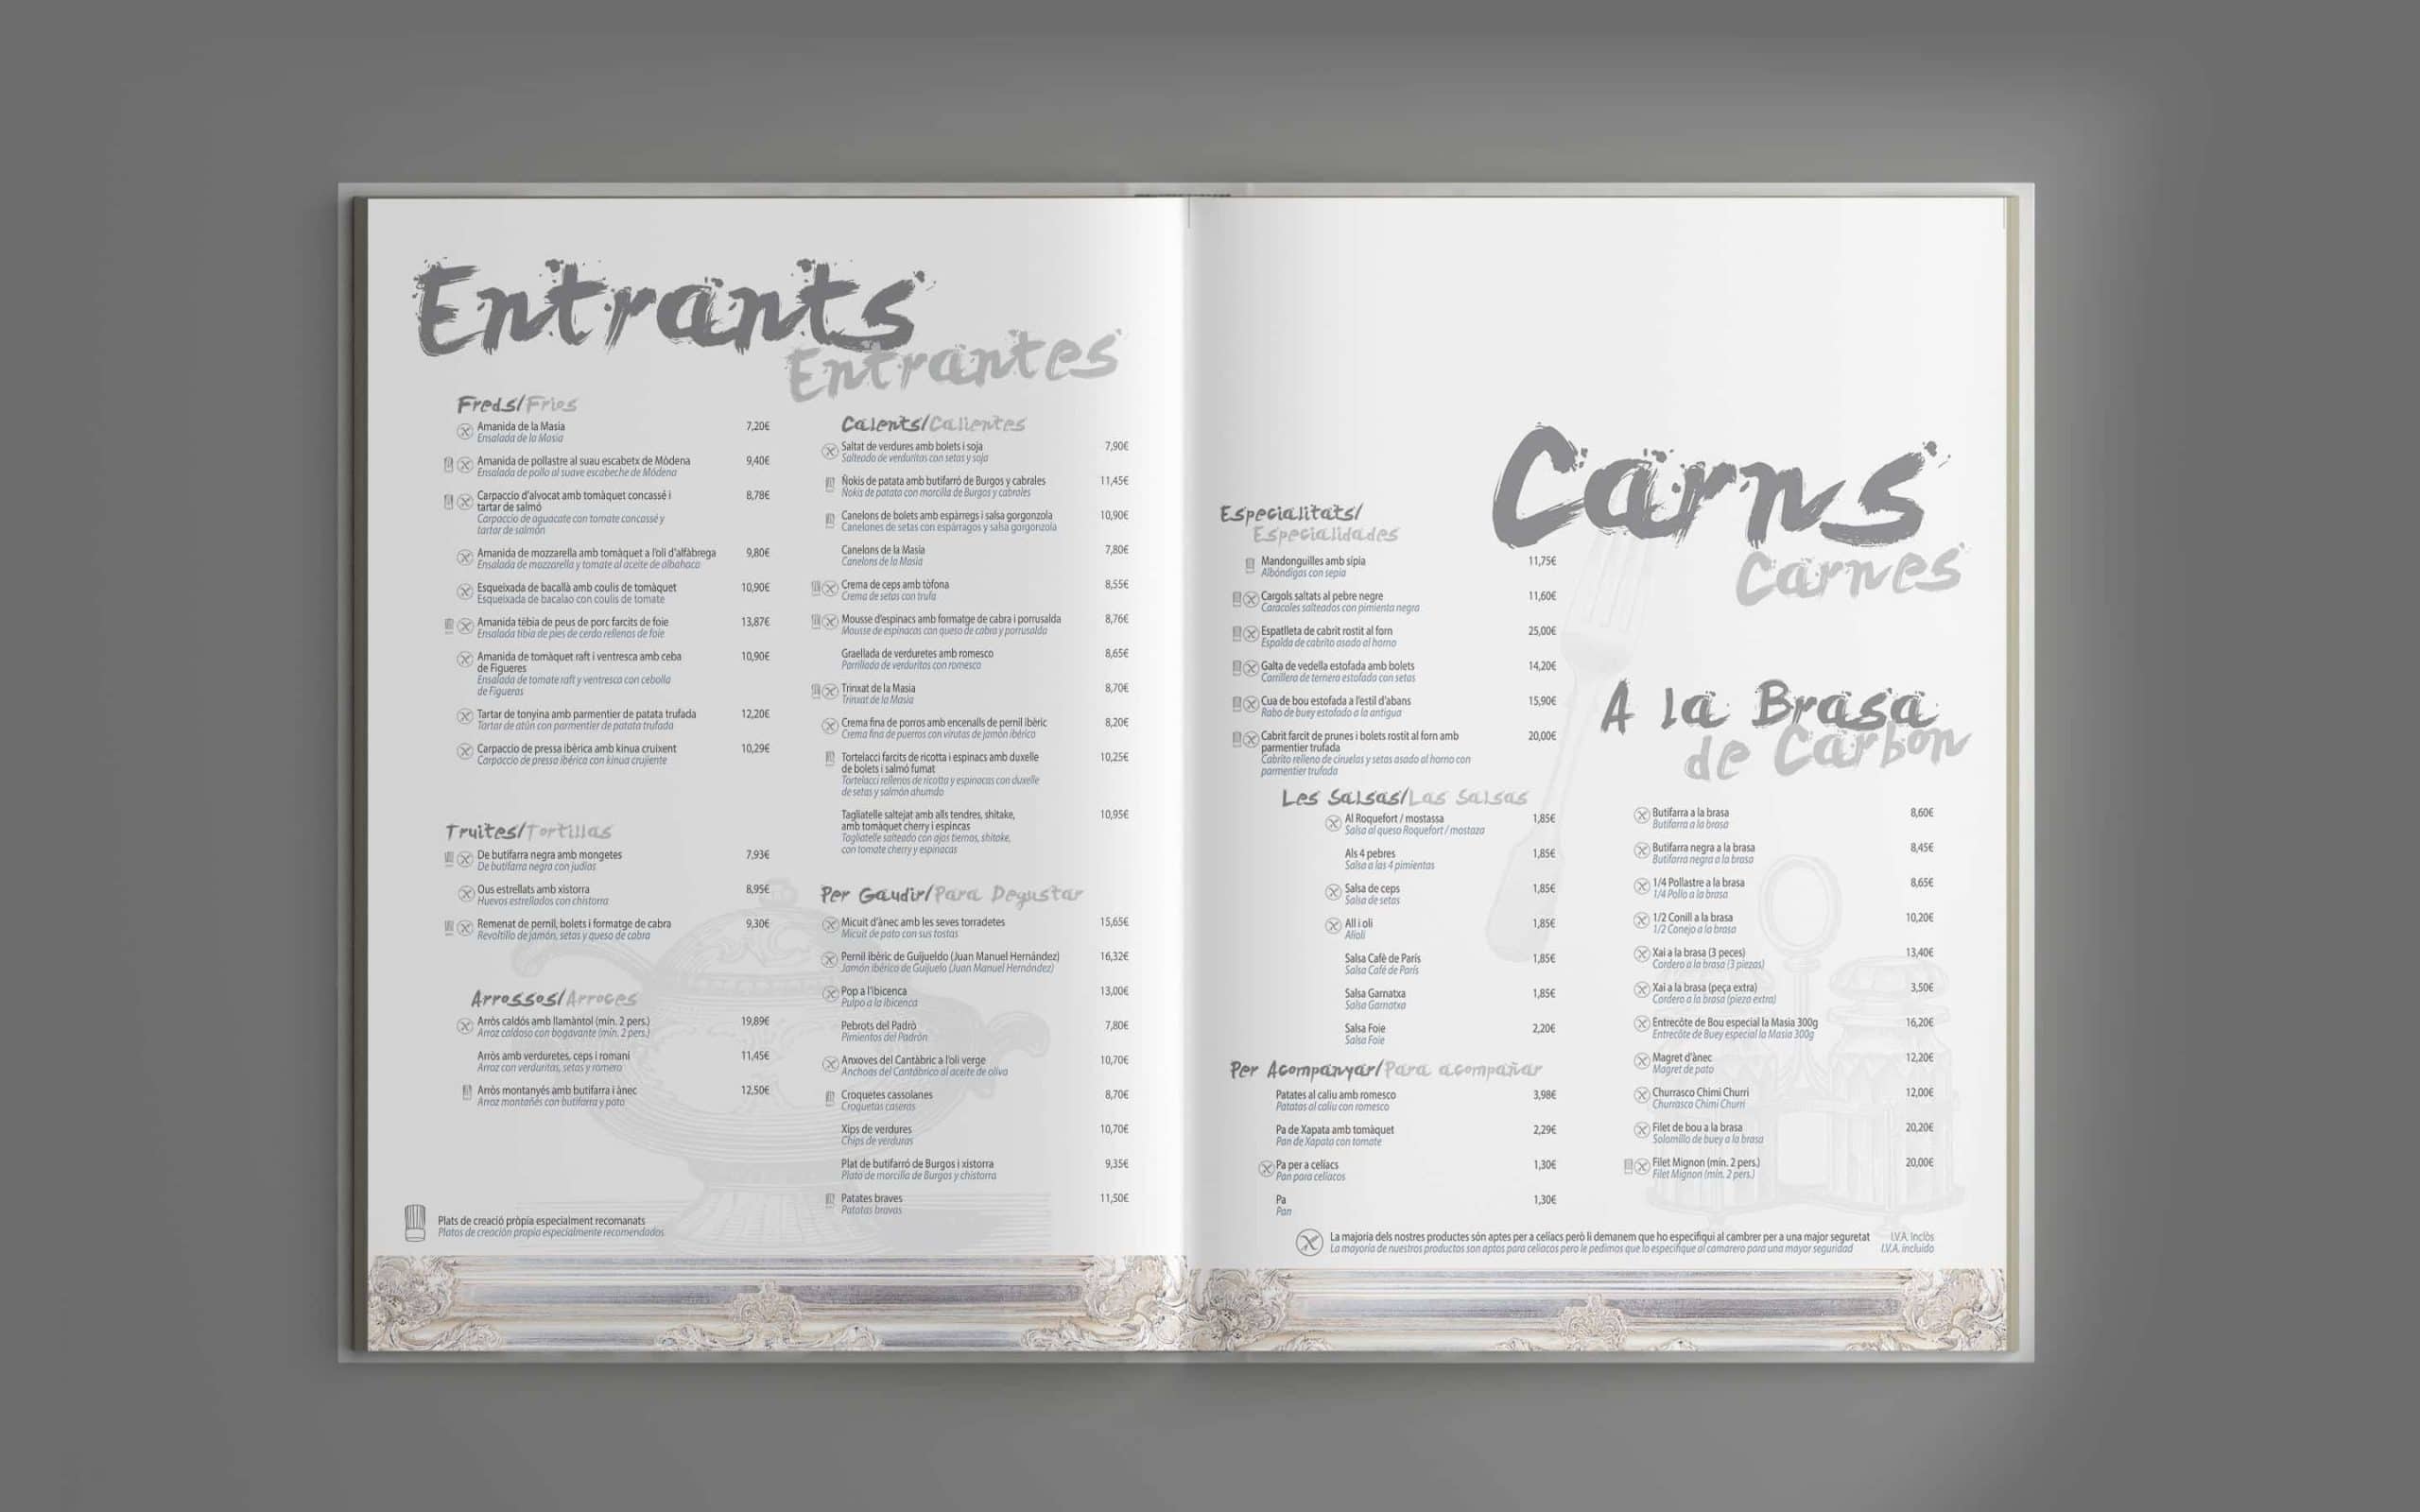 Entrants
Entrantes
Freds/Frios
Amanida de la Masia 7,20€
Ensalada de la Masia
Amanida de pollastre al suau escabetx de Mòdena 9,40€
Ensalada de pollo al suave escabeche de Módena
Carpaccio d'alvocat amb tomàquet concassé i 8,78€
tartar de salmó
Carpaccio de aguacate con tomate concassé y
tartar de salmón
Amanida de mozzarella amb tomàquet a l'oli d'alfàbrega 9,80€
Ensalada de mozzarella y tomate al aceite de albahaca
Esqueixada de bacallà amb coulis de tomàquet 10,90€
Esqueixada de bacalao con coulis de tomate
Amanida tèbia de peus de porc farcits de foie 13,87€
Ensalada tibia de pies de cerdo rellenos de foie
Amanida de tomàquet raft i ventresca amb ceba 10,90€
de Figueres
Ensalada de tomate raft y ventresca con cebolla
de Figueras
Tartar de tonyina amb parmentier de patata trufada 12,20€
Tartar de atún con parmentier de patata trufada
Carpaccio de pressa ibèrica amb kinua cruixent 10,29€
Carpaccio de presso ibérica con kinua crujiente
Truites/Tortillas
De butifarra negra amb mongetes 7,93€
De butifarra negra con judías
Ous estrellats amb xistorra 8,95€
Huevos estrellados con chistorra
Remenat de pernil, bolets i formatge de cabra 9,30€
Revoltillo de jamón, setas y queso de cabra
Arrossos/Arroces
Arròs caldós amb llamàntol (mín. 2 pers.) 19,89€
Arroz caldoso con bogavante (mín. 2 pers.)
Arròs amb verduretes, ceps i romaní 11,45€
Arroz con verduritas, setas y romero
Arròs montanyés amb butifarra i ànec 12,50€
Arroz montañés con butifarra y pato
Plats de creació pròpia especialment recomanats
Platos de creación propia especialmente recomendados
Calents/Calientes
Saltat de verdures amb bolets i soja 7,90€
Salteado de verduritas con setas y soja
Ñokis de patata amb butifarró de Burgos y cabrales 11,45€
Ñokis de patata con morcilla de Burgos y cabrales
Canelons de bolets amb espàrregs i salsa gorgonzola 10,90€
Canelones de setas con espárragos y salsa gorgonzola
Canelons de la Masia 7,80€
Canelons de la Masia
Crema de ceps amb tòfona 8,55€
Crema de setas con trufa
Mousse d'espinacs amb formatge de cabra i porrusalda 8,76€
Mousse de espinacas con queso de cabra y porrusalda
Graellada de verduretes amb romesco 8,65€
Parrillada de verduritas con romesco
Trinxat de la Masia 8,70€
Trinxat de la Masia
Crema fina de porros amb encenalls de pernil ibèric 8,20€
Crema fina de puerros con virutas de jamón ibérico
Tortelacci farcits de ricotta i espinacs amb duxelle 10,25€
de bolets i salmó fumat
Tortelacci rellenos de ricotta y espinacas con duxelle
de setas y salmón ahumdo
Tagliatelle saltejat amb alls tendres, shitake, 10,95€
amb tomàquet cherry i espincas
Tagliatelle salteado con ajos tiernos, shitake,
con tomate cherry y espinacas
Per Gaudir/Para Degustar
Micuit d'ànec amb les seves torradetes 15,65€
Micuit de pato con sus tostas
Pernil ibèric de Guijueldo (Juan Manuel Hernández) 16,32€
Jamón ibérico de Guijuelo (Juan Manuel Hernández)
Pop a l'Ibicenca 13,00€
Pulpo a la ibicenca
Pebrots del Padró 7,80€
Pimientos del Padrón
Anxoves del Cantàbric a l'oli verge 10,70€
Anchoas del Cantábrico al aceite de oliva
Croquetes cassolanes 8,70€
Croquetas caseras
Xips de verdures 10,70€
Chips de verduras
Plat de butifarró de Burgos i xistorra 9,35€
Plato de morcilla de Burgos y chistorra
Patates braves 11,50€
Patatas bravas
Carns
Carnes
Especialitats/
Especialidades
Mandonguilles amb sípia 11,75€
Albóndigas con sepia
Cargols saltats al pebre negre 11,60€
Caracoles salteados con pimienta negra
Espatlleta de cabrit rostit al forn 25,00€
Espalda de cabrito asado al horno
Galta de vedella estofada amb bolets 14,20€
Carrillera de ternera estofada con setas
Cua de bou estofada a l'estil d'abans 15,90€
Rabo de buey estofado a la antigua
Cabrit farcit de prunes i bolets rostit al forn amb 20,00€
parmentier trufada
Cabrito relleno de ciruelas y setas asado al horno con
parmentier trufada
Les Salsas/Las Salsas
Al Roquefort / mostassa 1,85€
Salsa al queso Roquefort / mostaza
Als 4 pebres 1,85€
Salsa a las 4 pimientas
Salsa de ceps 1,85€
Salsa de setas
All i oli 1,85€
Alioli
Salsa Cafè de París 1,85€
Salsa Café de París
Salsa Garnatxa 1,85€
Salsa Garnatxa
Salsa Foie 2,20€
Salsa Foie
Per Acompanyar/Para acompañar
Patates al caliu amb romesco 3,98€
Patatas al caliu con romesco
Pa de Xapata amb tomàquet 2,29€
Pan de Xapata con tomate
Pa per a celíacs 1,30€
Pan para celíacos
Pa 1,30€
Pan
A la Brasa
de Carbon
Butifarra a la brasa 8,60€
Butifarra a la brasa
Butifarra negra a la brasa 8,45€
Butifarra negra a la brasa
1/4 Pollastre a la brasa 8,65€
1/4 Pollo a la brasa
1/2 Conill a la brasa 10,20€
1/2 Conejo a la brasa
Xai a la brasa (3 peces) 13,40€
Cordero a la brasa (3 piezas)
Xai a la brasa (peça extra) 3,50€
Cordero a la brasa (pieza extra)
Entrecôte de Bou especial la Masia 300g 16,20€
Entrecôte de Buey especial la Masia 300g
Magret d'ànec 12,20€
Magret de pato
Churrasco Chimi Churri 12,00€
Churrasco Chimi Churri
Filet de bou a la brasa 20,20€
Solomillo de buey a la brasa
Filet Mignon (mín. 2 pers.) 20,00€
Filet Mignon (mín. 2 pers.)
La majoria dels nostres productes són aptes per a celíacs però li demanem que ho especifiqui al cambrer per a una major seguretat I.V.A. Inclòs
La mayoría de nuestros productos son aptos para celíacos pero le pedimos que lo especifique al camarero para una mayor seguridad I.V.A. incluido